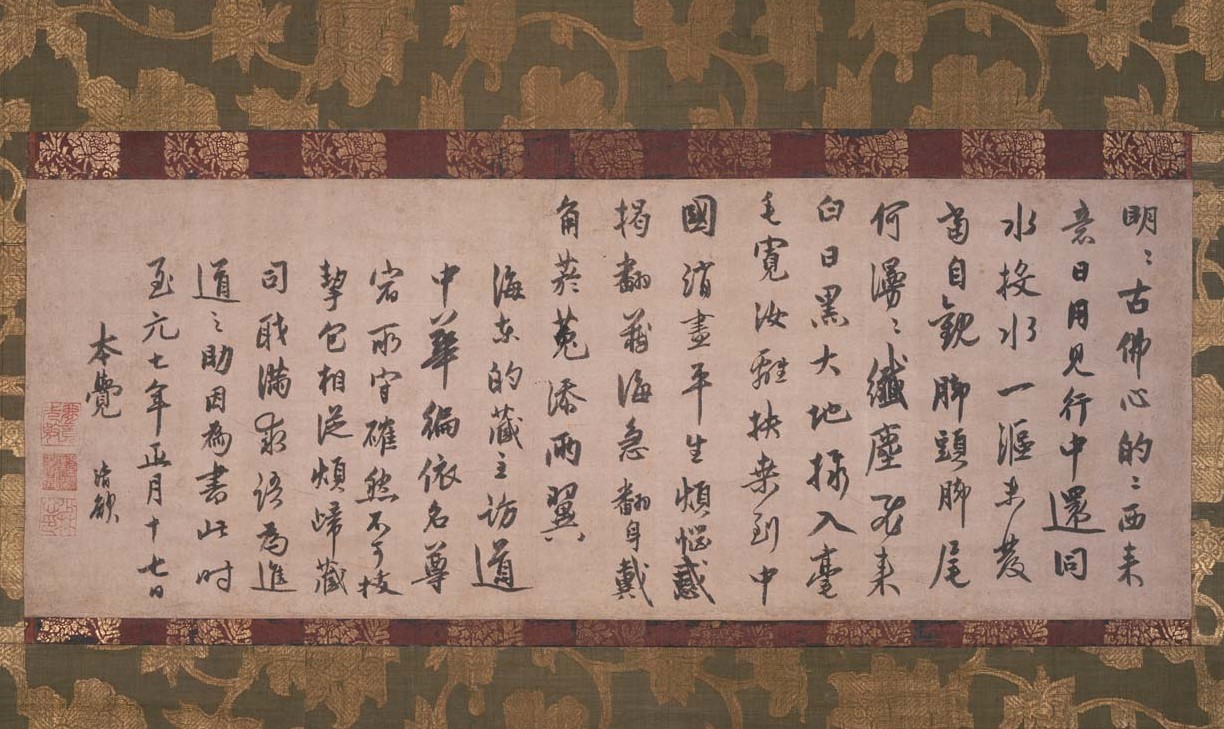 明々古佛心的々西来
意日用見行中還同
水投水一漚未發
當自觀脚頭脚尾
何漫々纖塵飛来
白日黑大地採入毫
毛寬汝離扶桒到中
國消盡平生煩惱惑
掲翻藏海急翻身戴
角菸菟添兩翼
海東的藏主訪道
中華徧依名尊
宿所守確然不可拔
挈包相從煩歸藏
司職滿求語為進
道之助因為書此时
至元七年正月十七日
本覺 清欲